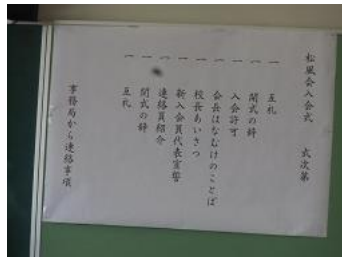 松風会入会式　式次第
一　互礼
一　開式の辞
一　入会許可
一　会長はなむけのことば
一　校長あいさつ
一　新入会員代表宣誓
一　連絡員紹介
一　閉式の辞
一　互礼
事務局から連絡事項